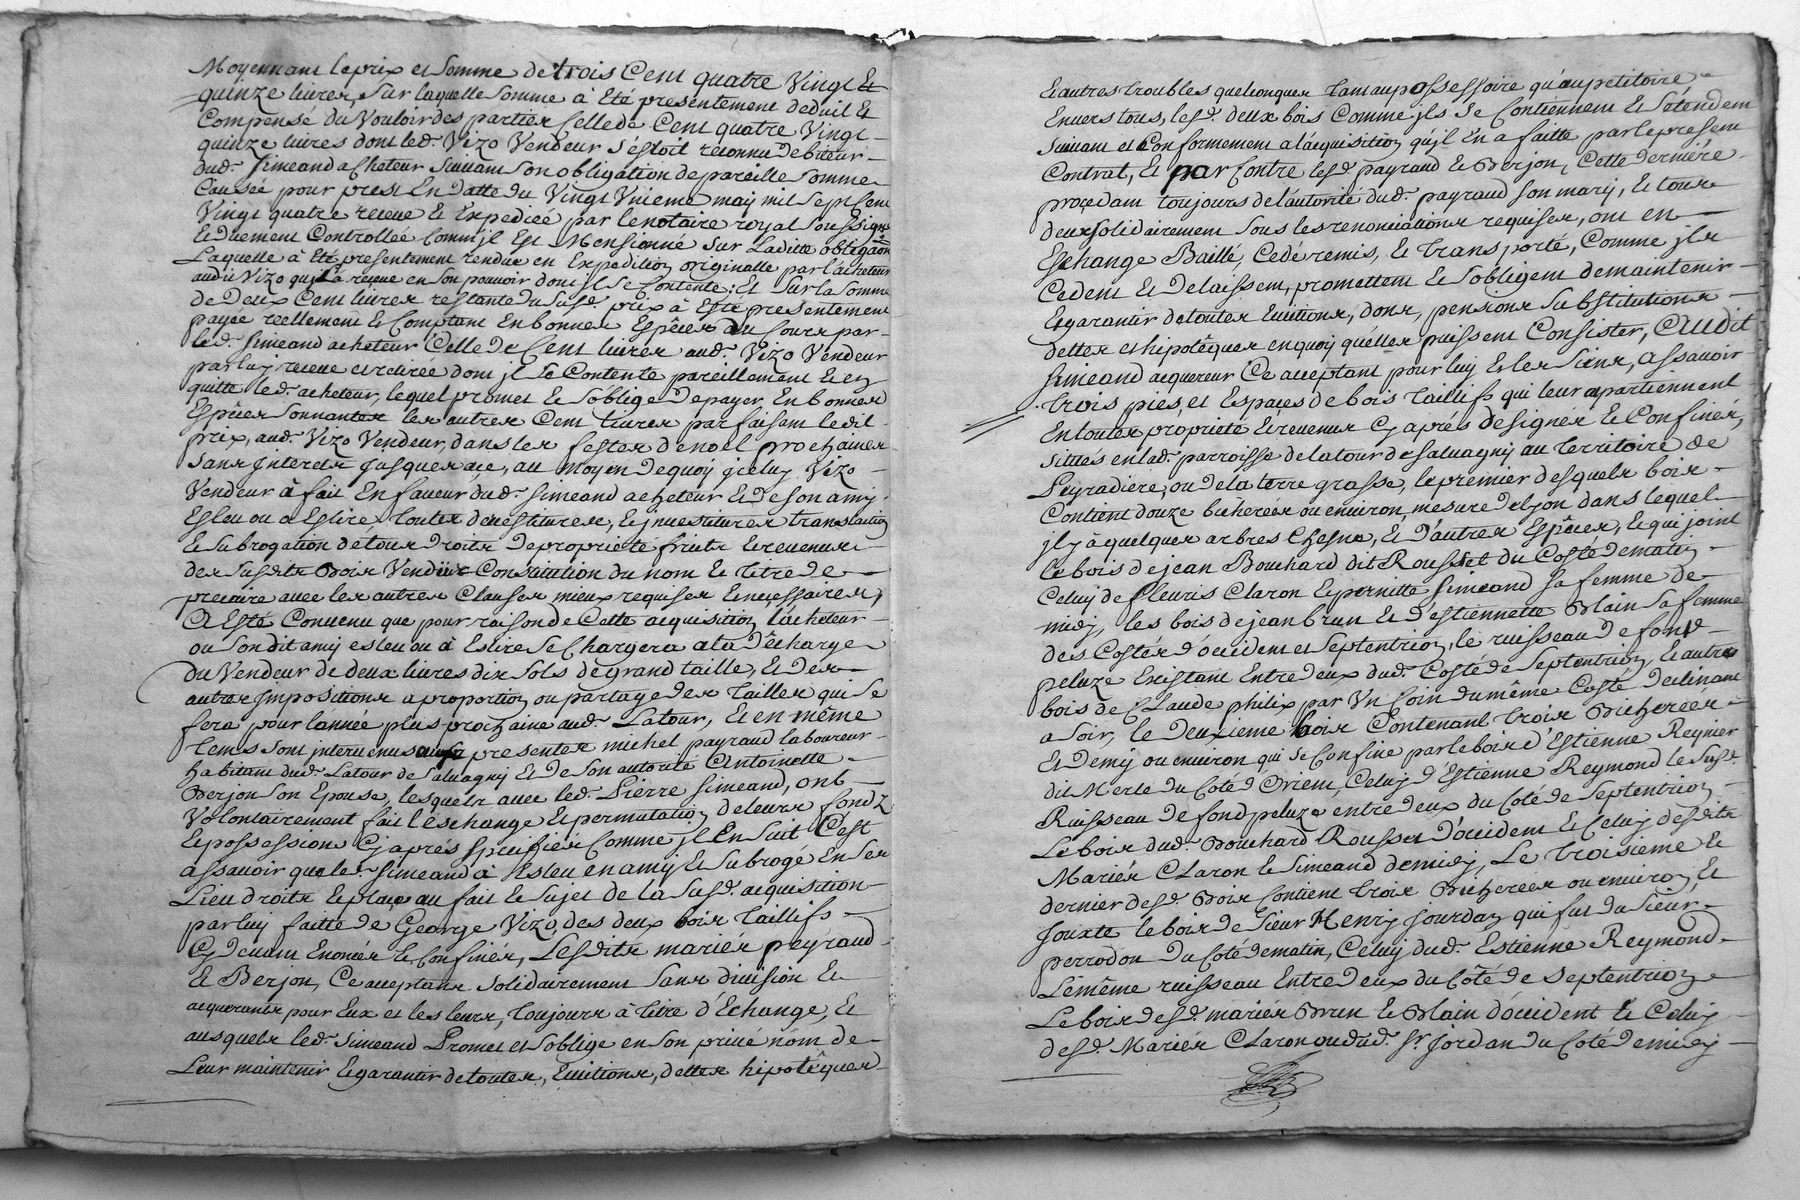 Moyennant le prix et somme de trois Cent quatre Vingt Et
quinze livres, sur laquelle somme à Eté presentement deduit Et
Compensé du Vouloir des parties Celle de Cent quatre Vingt
quinze livres dont led. Vizo Vendeur s'estoit reconnu debiteur
dud. Simeand acheteur suivant son obligation de pareille somme
Causée pour prest En datte du Vingt Vnieme may mil sept Cent
Vingt quatre receue Et Expediée par le notaire royal soussigné
Et Duement Controllée Comm'jl Est Mensionné sur Laditte obligaon
Laquelle à Eté presentement rendue en Expedition originalle par l'acheteur
audit Vizo qui l'à reçue en son pouvoir dont jl se Contente; Et sur la somme
de Deux Cent livres restante du susd. prix à Esté presentement
payée réellement Et Comptant En bonnes Espèces du Cours par
led. Simeand acheteur Celle de Cent livres aud. Vizo Vendeur
par luy receue et retirée dont jl se Contente pareillement Et en
quitte led. acheteur, lequel promet Et s'oblige De payer En bonnes
Espèces sonnantes les autres Cent livres parfaisant le dit
prix, aud. Vizo Vendeur, dans les festes de noel prochaines
sans Interets Jusques ace, au moyen de quoy jceluy Vizo
Vendeur à fait En faveur dud. Simeand acheteur Et De son amy
Esleu ou a Eslire toutes devestitures, Et jnvestitures translation
Et subrogation de tous droits De proprieté fruits Et revenus
des susdits Bois Vendus Constitution du nom Et titre de
precaire avec les autres Clauses mieux requises Et necessaires,
A Esté Convenu que pour raison de Cette acquisition l'acheteur
ou son dit amy esleu ou à Eslire se Chargera a la Décharge
du Vendeur de deux livres dix sols de grand taille, Et Des
autres Impositions a proportion ou partage des tailles qui se
fera pour l'année plus prochaine aud. Latour, Et en même
tems sont intervenus presentes michel payraud laboureur
habitant dud. Latour de Salvagny Et De son autorité Antoinette
Berjon son Epouse, lesquels avec led. Pierre Simeand, ont
Volontairement fait l'éschange Et permutation de leurs fondz
Et possessions Cy après spécifiés Comme jl En suit C'est
assavoir que led. Simeand à Esleu en amy Et subrogé En ses
Lieu droits Et place au fait Et sujet de la susd. acquisition
par luy faitte de George Vizo, des deux bois taillifs
Cy devant Enoncés Et Confinés, Lesdits mariés peyraud
Et Berjon, Ce acceptans solidairement sans division Et
acquerants pour Eux et les leurs, toujours à titre d'Echange, Et
ausquels led. Simeand Promet et s'oblige en son privé nom de
Leur maintenir Et garantir de toutes, Evitions, dettes hipotêques
Et autres troubles quelconques tant au possessoire qu'au petitoire
Envers tous, lesd. deux bois Comme jls se Contiennent Et s'étendent
suivant et Conformement à l'acquisition qu'jl En a faitte par le present
Contrat, Et par Contre lesd. payraud Et Berjon, Cette dernière
procedant toujours de l'autorité dud. payraud son mary, Et tous
deux solidairement sous les renonciations requises, ont en
Eschange Baillé, Cedé remis, Et transporté, Comme jls
Cedent Et Delaissent, promettent Et s'obligent de maintenir
Et garantir de toutes Evitions, dons, pensions substitutions
dettes et hipotêques en quoy qu'elles puissent Consister, Audit
Simeand acquereur Ce acceptant pour luy Et les siens, assavoir
trois pies, et Espaces de bois taillifs qui leur apartiennent
En toutes proprieté Et revenus Cy après designés Et Confinés,
situés en lad. parroisse de latour de salvagny au territoire de
Peyradiere, ou de la terre grasse, le premier desquels bois
Contient douze bicherées ou environ mesure de lyon dans lequel
jl y à quelques arbres Chesnes, Et d'autres Espèces, Et qui joint
le bois de jean Bouchard dit Rousset du Costé de matin
Celuy de fleuris Claron Et pernitte Simeand sa femme de
midy, les bois de jean brun Et d'estiennette Blain sa femme
des Costés d'occident et septentrion, le ruisseau de fond
peluze Existant Entre deux dud. Costé de septentrion, Et autre
bois de Claude philix par Vn Coin du même Costé declinant
a soir, le deuxieme bois Contenant trois Bicherées
Et Demy ou environ qui se Confine par le bois d'Estienne Reynier
dit Merle du Coté d'Orient, Celuy d'Estienne Reymond le susd.
Ruisseau de fond peluze entre deux du Coté de septentrion
Le bois dud. Bouchard Rousset D'occident Et Celuy desdits
Mariés Claron Et Simeand de midy, Le troisieme Et
dernier desd. Bois Contient trois Bicherées ou environ, Et
Jouxte le bois de Sieur Henry Jourdan qui fut du sieur
perrodon Du Coté de matin, Celuy dud. Estienne Reymond
Le même ruisseau Entre deux du Côté de septentrion
Le bois desd. mariés Brun Et Blain d'occident Et Celuy
desd. Mariés Claron ou dud. sr. Jordan du Coté de midy